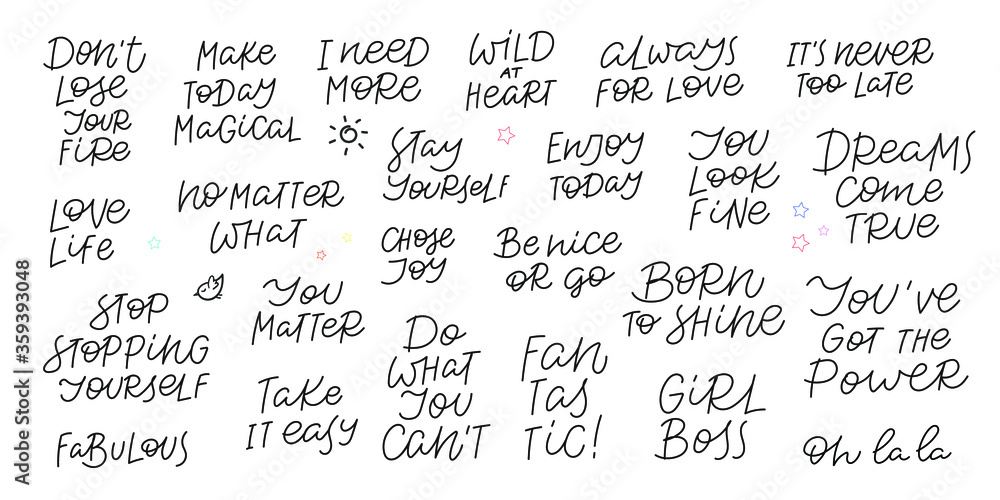 Don't
Lose
Your
Fire
Make
Today
Magical
I need
more
Wild
at
heart
always
for love
It's never
too late
Stay
yourself
Enjoy
today
You
look
fine
Dreams
come
true
Love
life
no matter
what
Chose
joy
Be nice
or go
Born
to shine
You've
got the
power
Stop
stopping
yourself
You
matter
Do
what
you
can't
Fan
tas
tic!
Girl
Boss
Take
it easy
Fabulous
Oh la la
Adobe Stock | #359393048
Adobe Stock